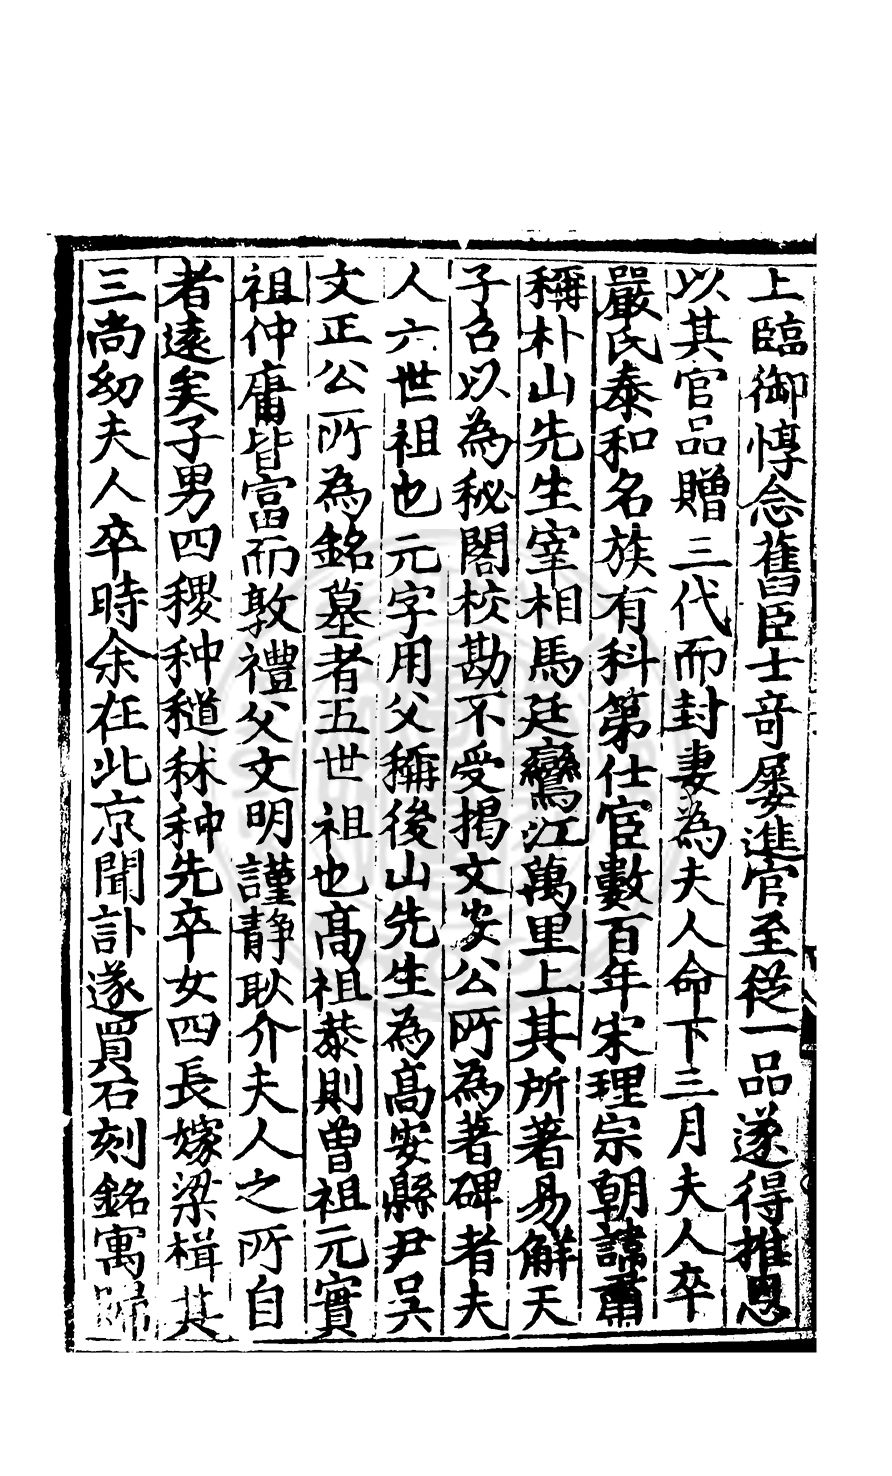 上臨御惇念舊臣士竒屡進官至從一品遂得推恩
以其官品贈三代而封妻為夫人命下三月夫人卒
嚴氏泰和名族有科第仕宦數百年宋理宗朝諱肅
稱朴山先生宰相馬廷鸞江萬里上其所著易解天
子召以為秘閣校勘不受掲文安公所為著碑者夫
人六世祖也元字用父稱後山先生為高安縣尹吴
文正公所為銘墓者五世祖也髙祖㳟則曾祖元實
祖仲庸皆富而敦禮父文明謹静耿介夫人之所自
者逺矣子男四稷种穜秫种先卒女四長嫁梁楫其
三尚幼夫人卒時余在北京聞訃遂買石刻銘寓歸